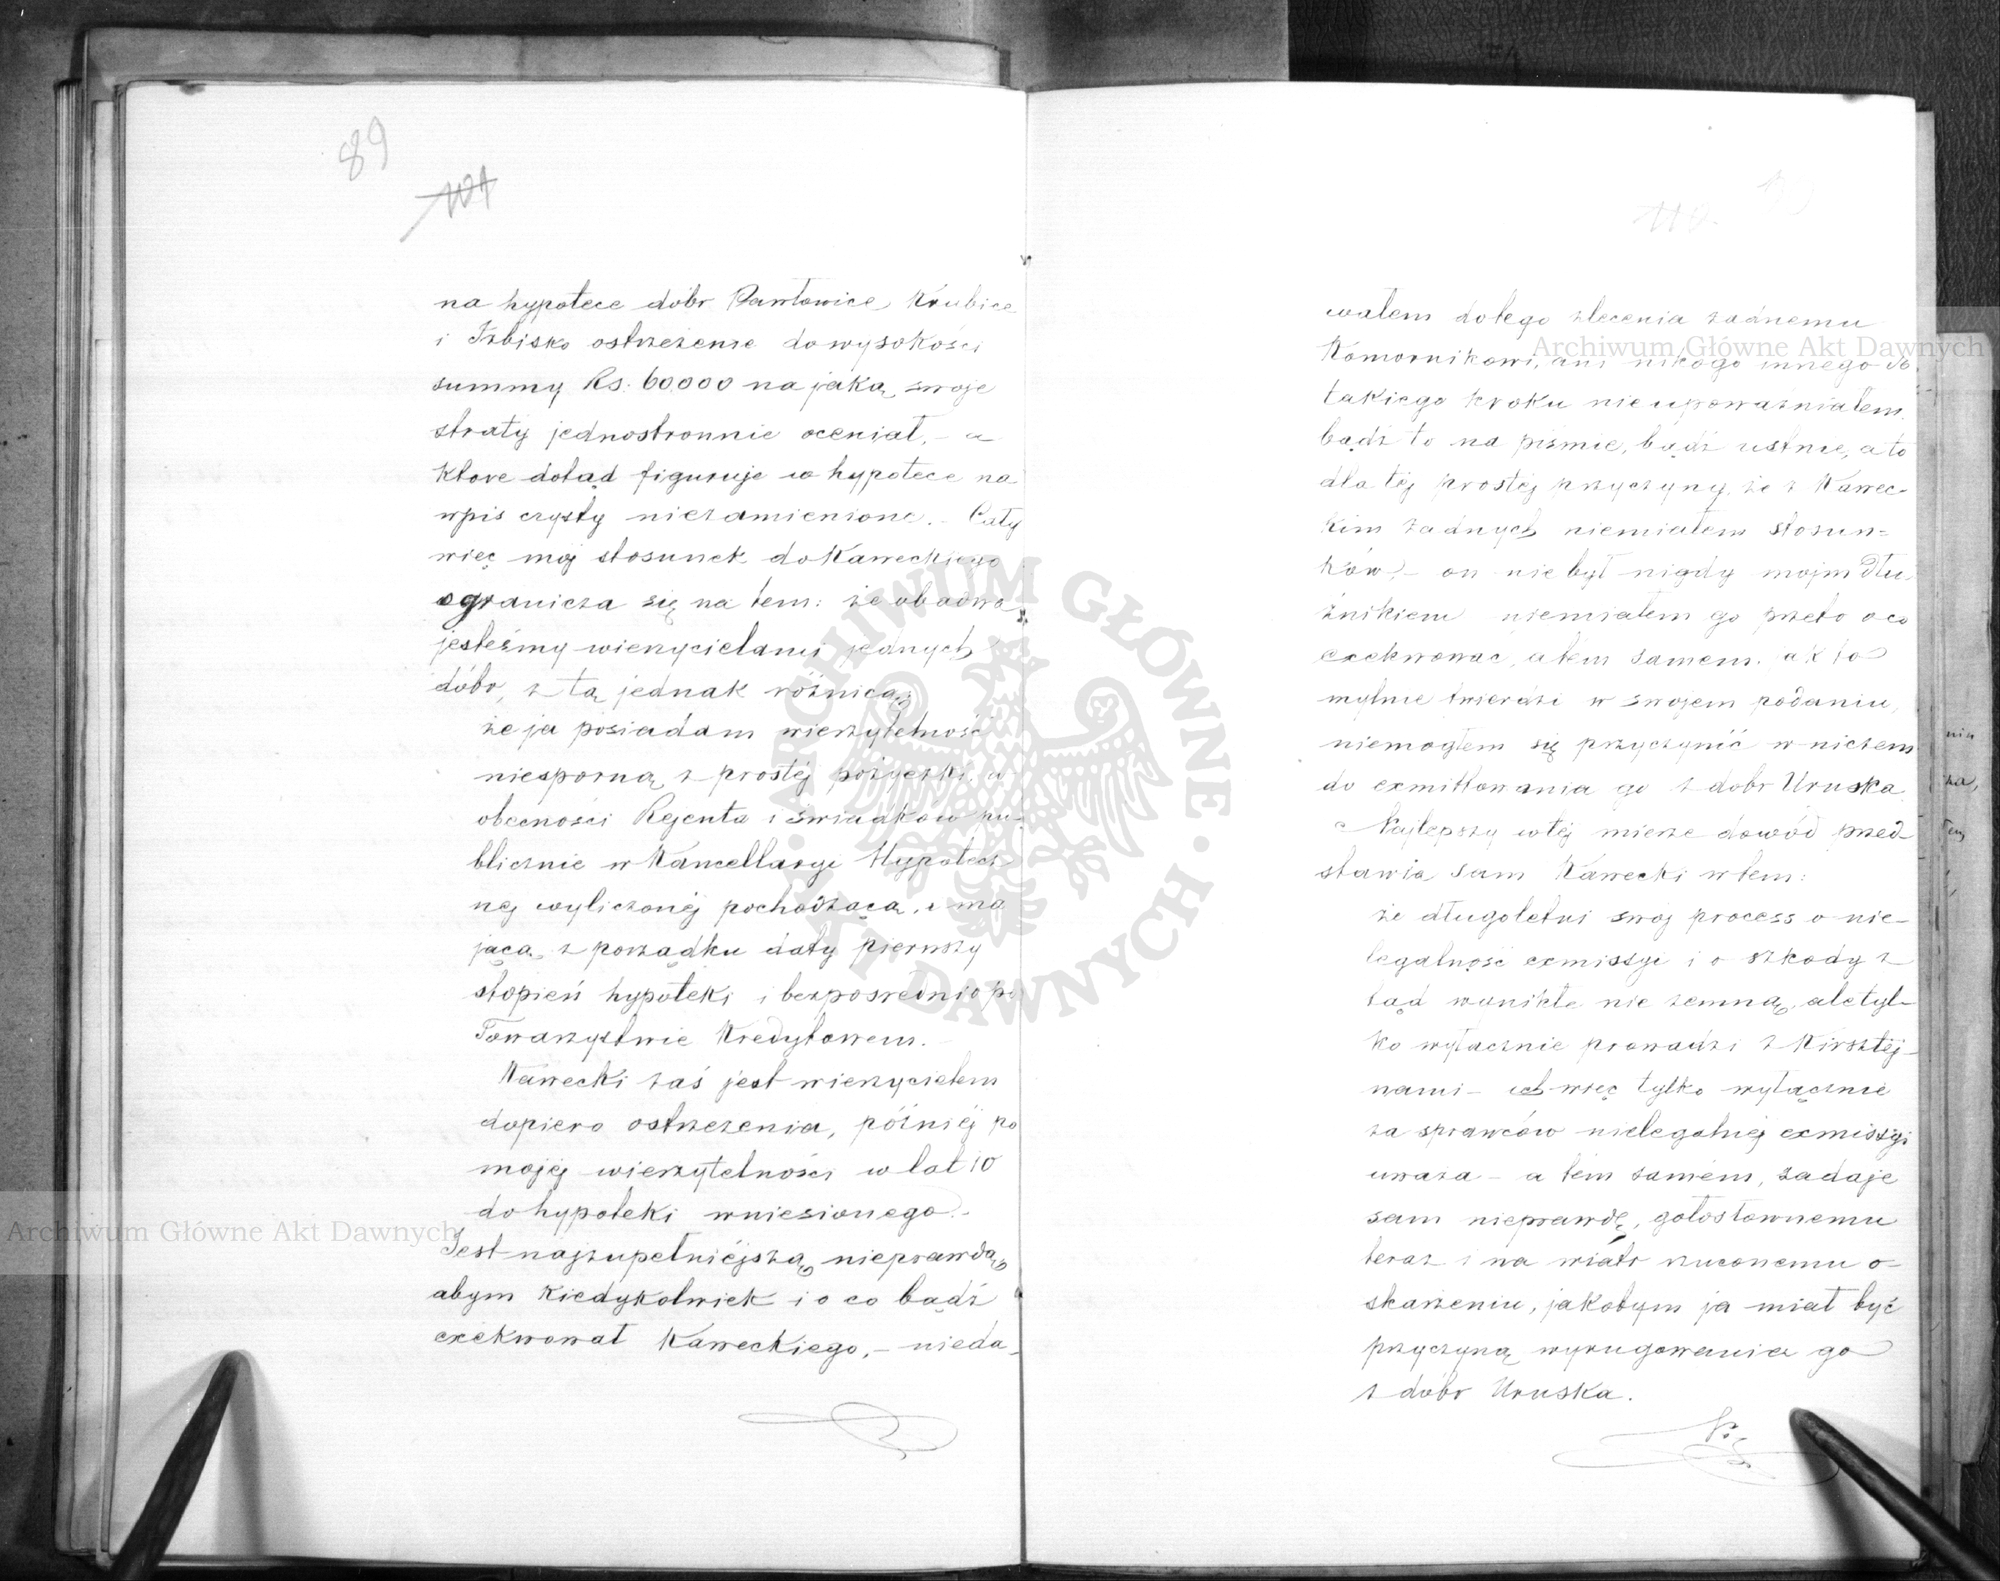 89
na hypotece dóbr Pawłowice, Krubice
i Izbisko ostrzeżenie do wysokości
summy Rs. 60.000 na jaką swoje
straty jednostronnie oceniał, – a
które dotąd figuruje w hypotece na
wpis czysty niezamienione. – Cały
więc mój stosunek do Kaweckiego
ogranicza się na tem: że obadwa
jesteśmy wierzycielami jednych
dóbr, z tą jednak różnicą;
że ja posiadam wierzytelność
niesporną z prostéj pożyczki w
obecności Rejenta i świadków pu-
blicznie w Kancellaryi Hypotecz
nej wyliczonéj pochodzącą, i ma
jącą z porządku daty pierwszy
stopień hypoteki i bezpośrednio po
Towarzystwie Kredytowem. –
Kawecki zaś jest wierzycielem
dopiero ostrzeżenia, późniéj po
mojéj wierzytelności w lat 10
do hypoteki wniesionego. –
Jest najzupełniéjszą nieprawdą
abym kiedykolwiek i o co bądź
exekwował Kaweckiego, – nieda-
110.
wałem do tego zlecenia żadnemu
Komornikowi, ani nikogo innego do
takiego kroku nie upoważniałem
bądź to na piśmie, bądź ustnie, a to
dla téj prostéj przyczyny, że z Kawec-
kim żadnych niemiałem stosun=
ków, – on nie był nigdy moim dłu
żnikiem niemiałem go przeto o co
exekwować, a tem samem, ak to
mylnie twierdzi w swojem podaniu,
niemogłem się przyczynić w niczem
do exmittowania go z dobr Uruska.
Najlepszy w téj mierze dowód przed
stawia sam Kawecki w tem:
że długoletni swój process o nie-
legalność exmissyi i o szkody z
tąd wynikłe nie zemną, ale tyl-
ko wyłacznie prowadzi z Kirsztéj-
nami – ich więc tylko wyłącznie
za sprawców nielegalnéj exmissyi
uważa – a tém samém, zadaje
sam nieprawdę, gołosłownemu
teraz i na wiatr rzuconemu o-
skarżeniu, jakobym ja miał być
przyczyną wyrugowania go
z dóbr Uruska.
nia
Archiwum Główne Akt Dawnych
Archiwum Główne Akt Dawnych
ARCHIWUM GŁÓWNE AKT DAWNYCH